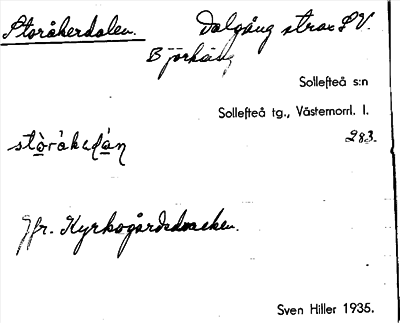 Storåkerdalen. Dalgång strax S V.
Björkäng
Sollefteå s:n
Sollefteå tg., Västernorrl. l.
283.
Jfr. Kyrkogårdsbacken.
Sven Hiller 1935.